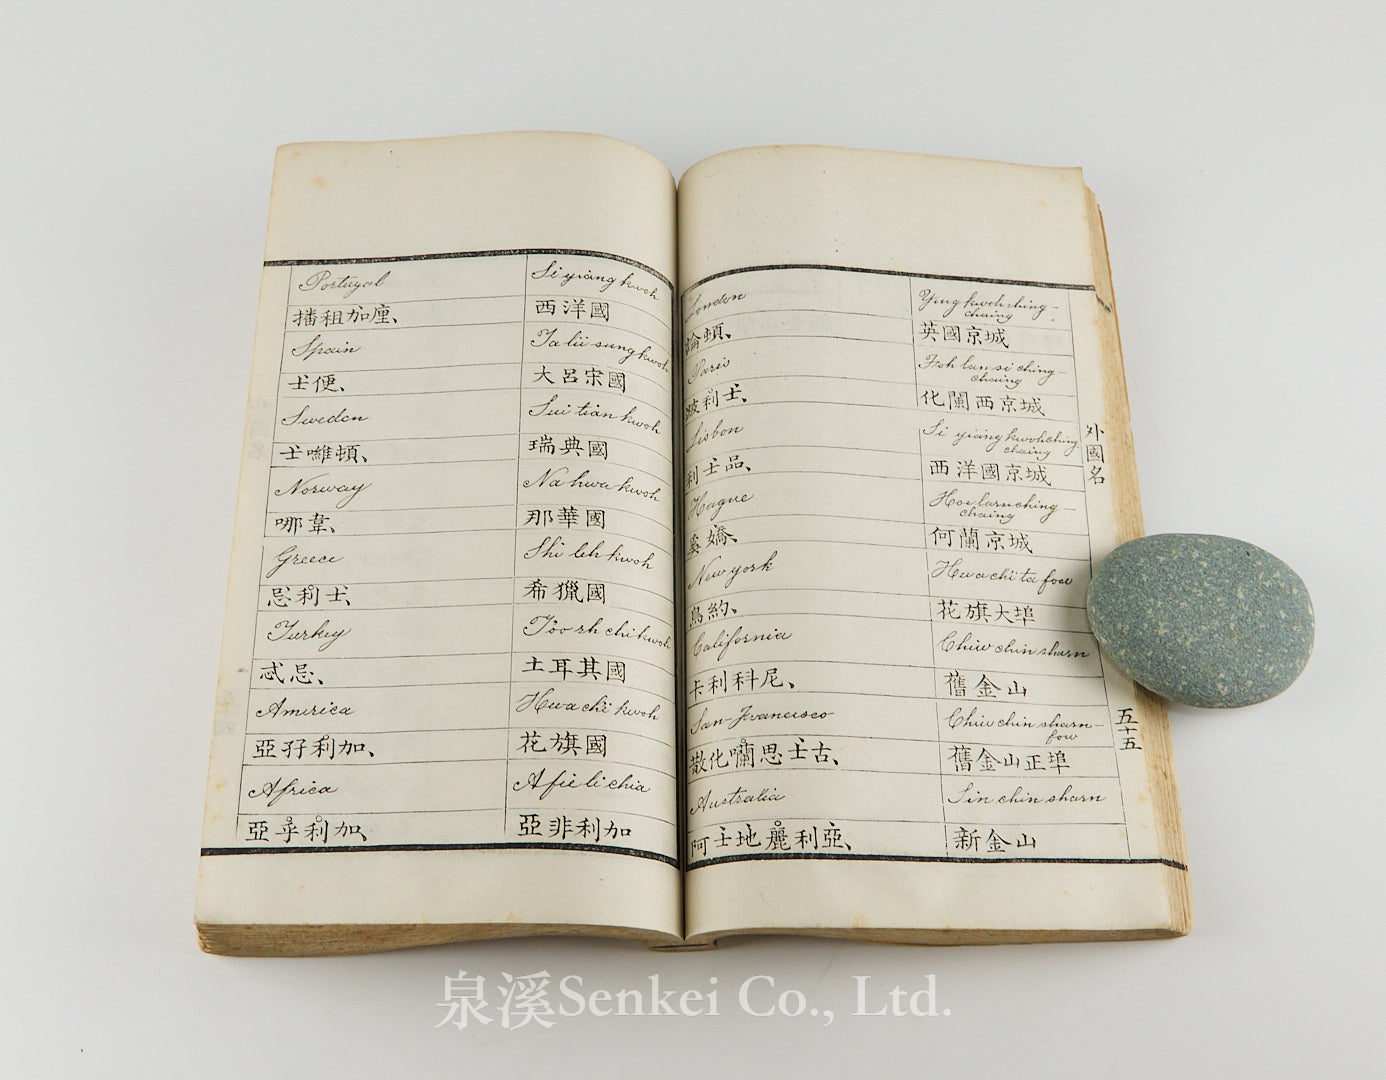 Portugal Si yiang kwoh
播租加廛、 西洋國
Spain Ta lii sung kwoh
士便、 大呂宋國
Sweden Sui tian kwoh
士囄頓、 瑞典國
Norway Na hwa kwoh
哪韋、 那華國
Greece Shi leh kwoh
忌利士、 希獵國
Turkey Too rh chi kwoh
忒忌、 土耳其國
America Hwa chi kwoh
亞孖利加、 花旗國
Africa A fie li chia
亞乎利加、 亞非利加
London Ying kwoh ching-chaing
論頓、 英國京城
Paris Foh lan si ching-chaing
玻利士、 化闌西京城
Lisbon Si yiang kwoh ching chaing
利士品、 西洋國京城
Hague Hoe larn ching-chaing
奚嬌、 何蘭京城
New york Hwa chi ta fow
鳥約、 花旗大埠
California Chiw chin sharn
卡利科尼、 舊金山
San-Francisco Chiw chin sharn-fow
散化囒思士古、 舊金山正埠
Australia Sin chin sharn
阿士地麗利亞、 新金山
外國名
五十五
泉溪Senkei Co., Ltd.